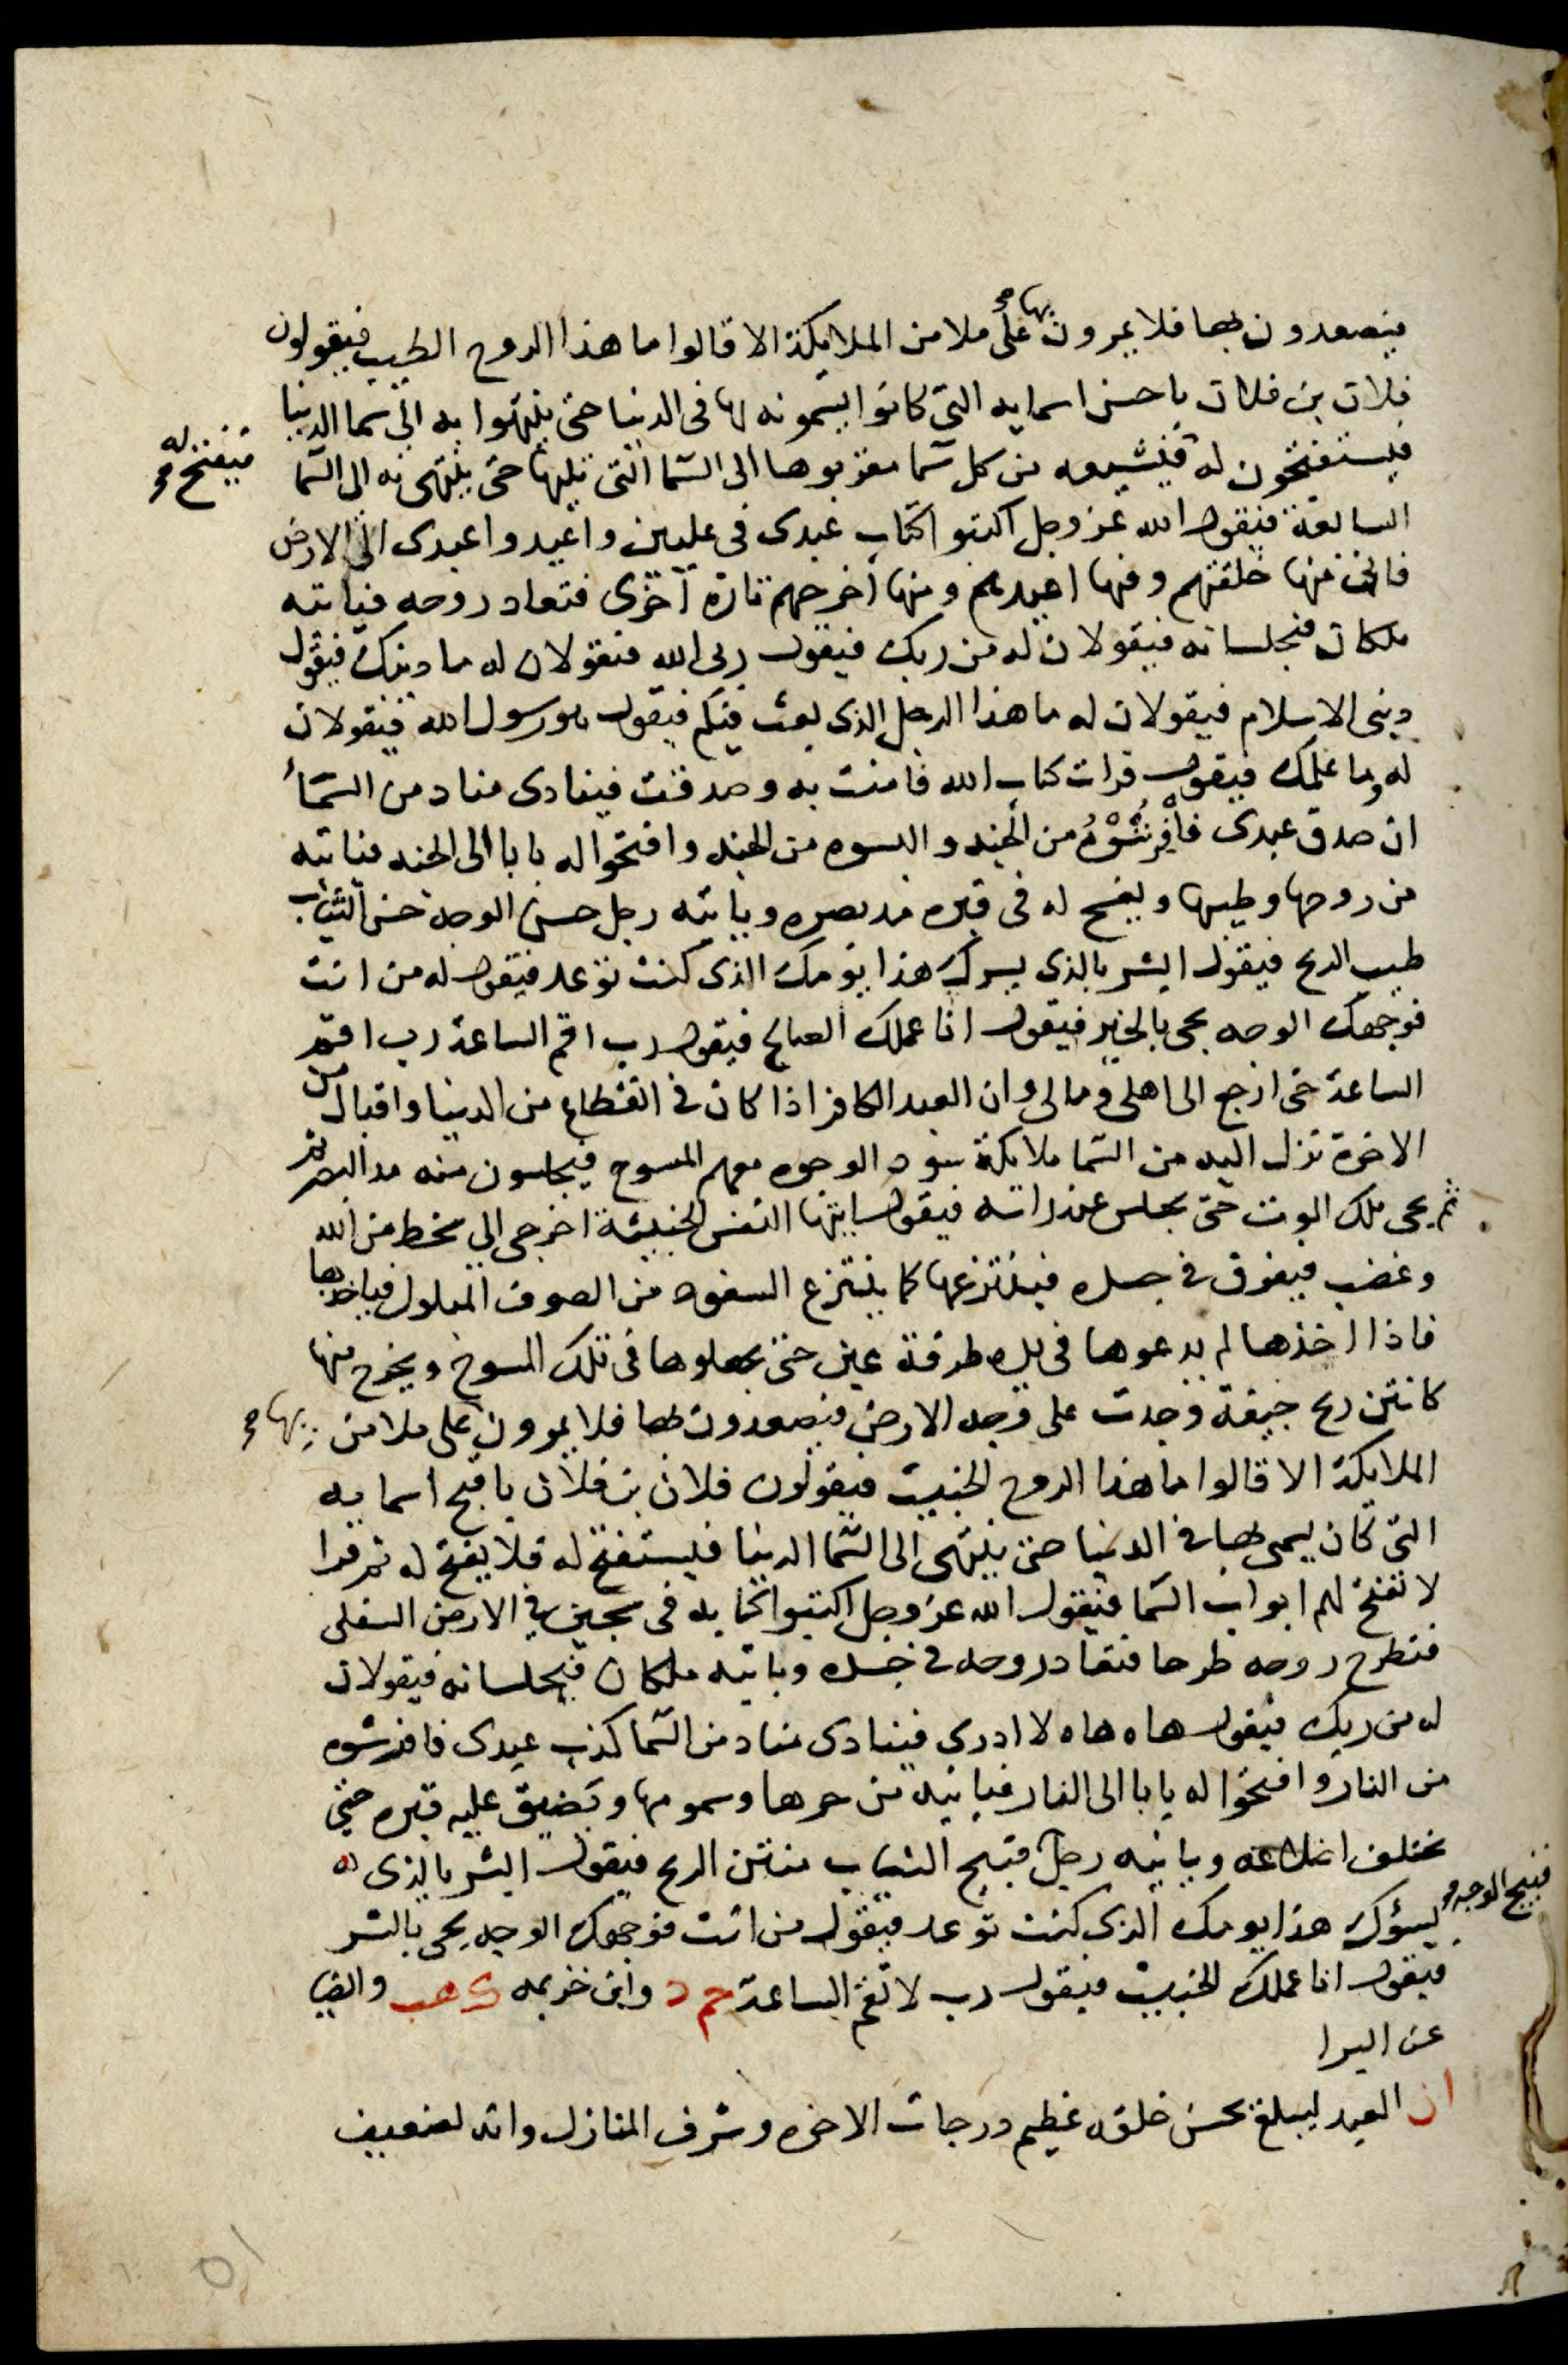 فيصعدون بها فلا يمرون بها على ملا من الملايكة الا قالوا ما هذا الروح الطيب فيقولون
فلان بن فلان باحسن اسمايه التي كانوا يسمونه بها في الدنيا حتى ينتهوا به الى سما الدنيا
فيستفتحون له فيشيعه من كل سما مقربوها الى السما التي تليها حتى ينتهى به الى السما
فيفتح له
السابعة فيقول الله عز وجل اكتبوا كتاب عبدى فى عليين واعيدوا عبدى الى الارض
فانى منها خلقتهم وفيها اعيدهم ومنها اخرجهم تارة اخرى فتعاد روحه فياتيه
ملكان فيجلسانه فيقولان له من ربك فيقول ربى الله فيقولان له ما دينك فيقول
دينى الاسلام فيقولان له ما هذا الرجل الذى بعث فيكم فيقول هو رسول الله فيقولان
له وما علمك فيقول قرات كتاب الله فامنت به وصدقت فينادى مناد من السماء
ان صدق عبدى فافرشوه من الجنه والبسوه من الجنه وافتحوا له بابا الى الجنه فياتيه
من روحها وطيبها ويفسح له فى قبره مد بصره وياتيه رجل حسن الوجه حسن الثياب
طيب الريح فيقول ابشر بالذى يسرك هذا يومك الذى كنت توعد فيقول له من انت
فوجهك الوجه يجى بالخير فيقول انا عملك الصالح فيقول رب اقم الساعة رب اقم
الساعة حتى ارجع الى اهلى ومالى وان العبد الكافر اذا كان فى انقطاع من الدنيا واقبال من
الاخرة نزل اليه من السما ملايكة سود الوجوه معهم المسوح فيجلسون منه مد البصر ثم
ثم يجى ملك الموت حتى يجلس عند راسه فيقول ايتها النفس الخبيثة اخرجى الى سخط من الله
وغضب فيفرق فى جسده فينتزعها كما ينتزع السفود من الصوف المبلول فياخذها
فاذا اخذها لم يدعوها فى يده طرفة عين حتى يجعلوها فى تلك المسوح ويخرج منها
كانتن ريح جيفة وجدت على وجه الارض فيصعدون بها فلا يمرون على ملا من بها
الملايكة الا قالوا ما هذا الروح الخبيث فيقولون فلان بن فلان باقبح اسمايه
التى كان يسمى بها فى الدنيا حتى ينتهى الى السما الدنيا فيستفتح له فلا يفتح له ثم قرا
لا تفتح لهم ابواب السما فيقول الله عز وجل اكتبوا كتابه فى سجين فى الارض السفلى
فتطرح روحه طرحا فتعاد روحه فى جسده وياتيه ملكان فيجلسانه فيقولان
له من ربك فيقول هاه هاه لا ادرى فينادى مناد من السما كذب عبدى فافرشوه
من النار وافتحوا له بابا الى النار فياتيه من حرها وسمومها ويضيق عليه قبره حتى
تختلف اضلاعه وياتيه رجل قبيح الثياب منتن الريح فيقول ابشر بالذى
قبيح الوجه
يسؤك هذا يومك الذى كنت توعد فيقول من انت فوجهك الوجه يجى بالشر
فيقول انا عملك الخبيث فيقول رب لا تقم الساعة حم د وابن خزيمه ك هب والضيا
عن البرا
ان العبد ليبلغ بحسن خلقه عظيم درجات الاخره وشرف المنازل وانه لضعيف